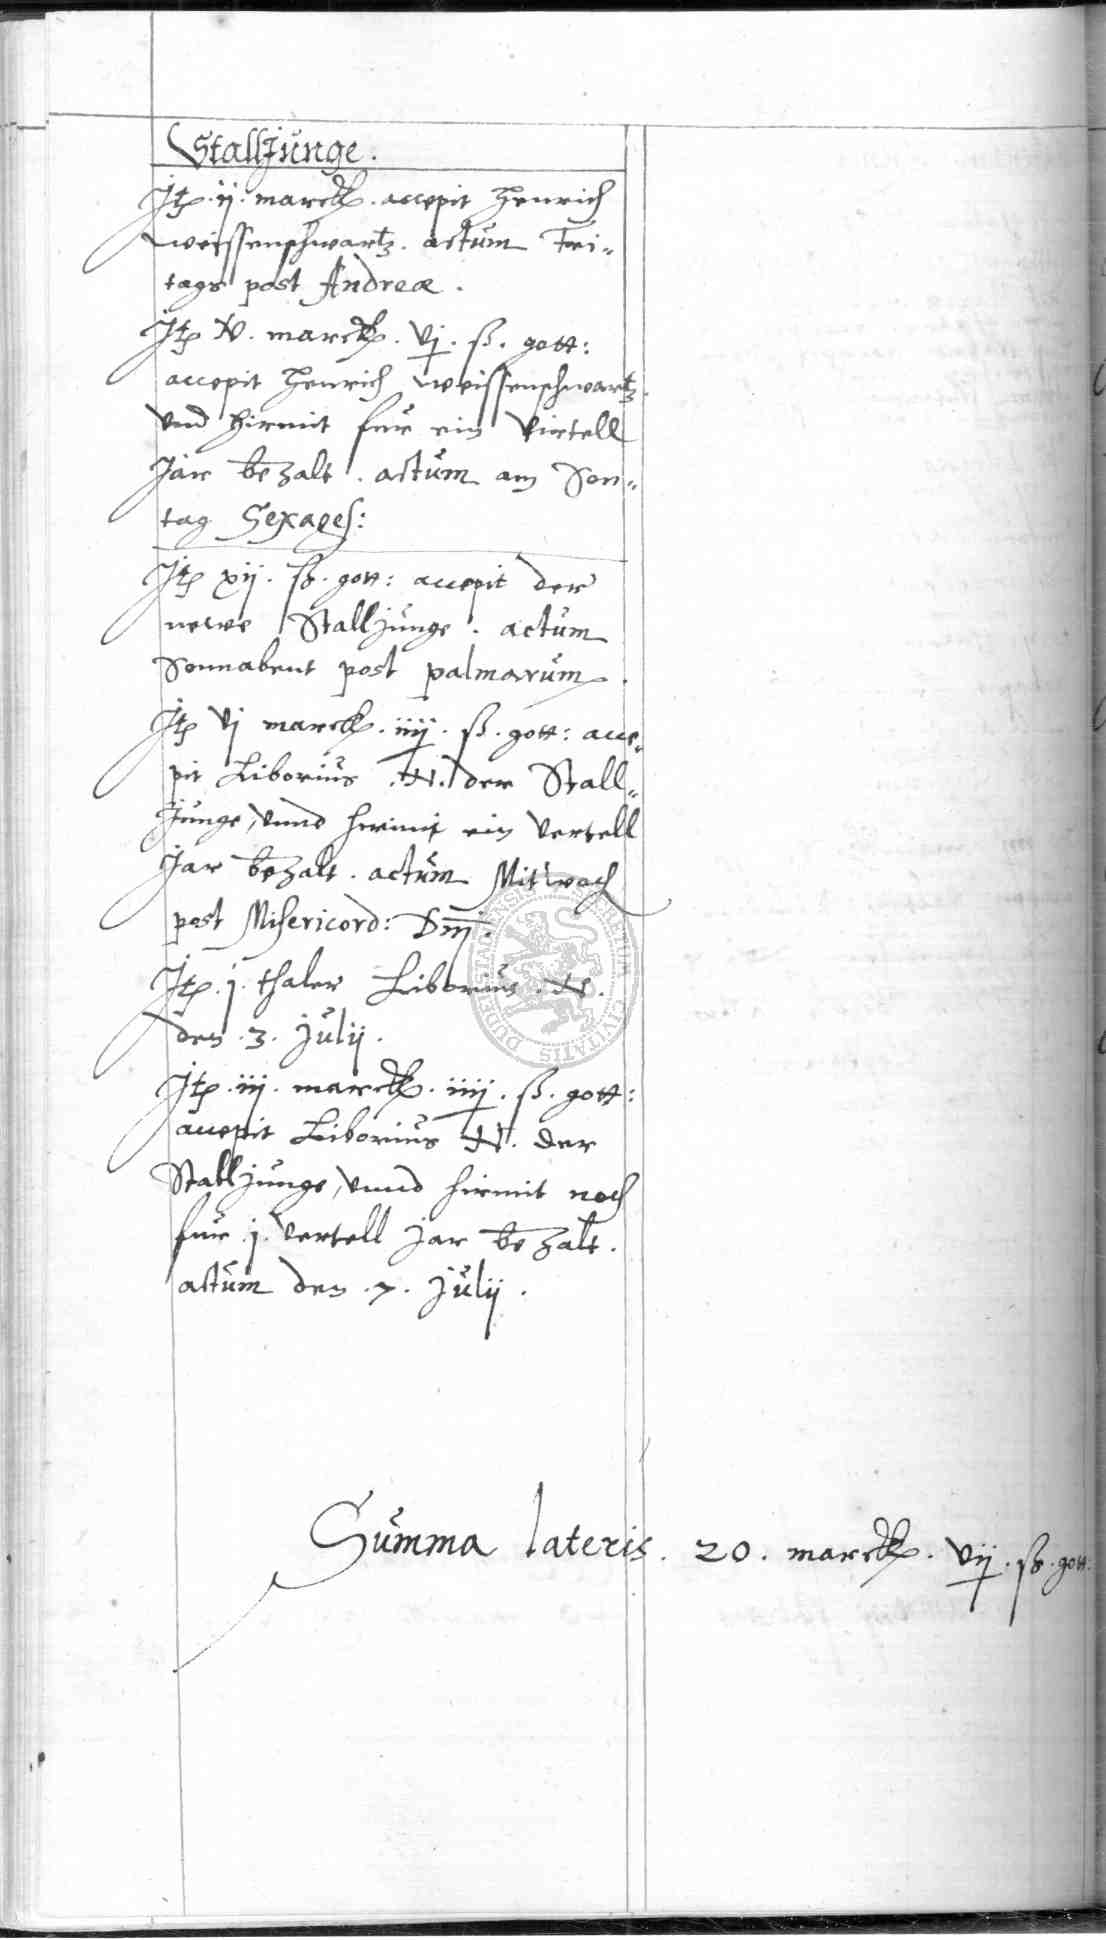 Stalljunge.
Jtem .ij. marck. accepit Henrich
weissenschwartz. actum Fri-
tags post Andreæ.
Jtem marck. vj. ß. gott:
accepit Henrich weissenschwartz.
vnd hirmit fur ein virtell
Jar bezalt. actum am Son-
tag Sexages:
Jtem xij. ß. gott: accepit der
newe Stalljunge. actum
Sonnabent post palmarum.
Jtem vj marck. iiij. ß. gott: acce-
pit Liborius .N. der Stall-
Junge, vnnd hirmit ein vertell
Jar bezalt. actum Mitwoch
post Misericord: Dnj.
Jtem .j. thaler Liborius .N.
den .3. julij.
Jtem .iij. marck. iiij. ß. gott:
accepit Liborius N. der
Stalljunge, vnnd hirmit noch
fur .j. vertell jar bezalt.
actum den .7. julij.
Summa lateris. 20. marck. vij. ß. gott.
SECRETUM CIVITATIS DUDERSTADENSIS